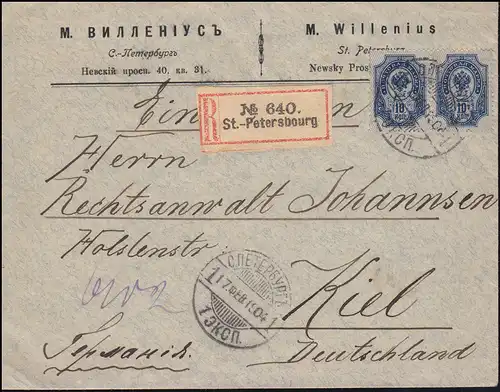 М. ВИЛЛЕНІУСЪ
С.-Петербургъ
Невскій просп. 40, кв. 31.
M. Willenius
St. Petersburg
Newsky Pros
10
КОП.
10
КОП.
Einschreiben
R
№ 640.
St.-Petersbourg
Herrn
Rechtsanwalt Johannsen
Holstenstr
Kiel
Deutschland
Германія.
С.ПЕТЕРБУРГЪ
1 ЭКСП.